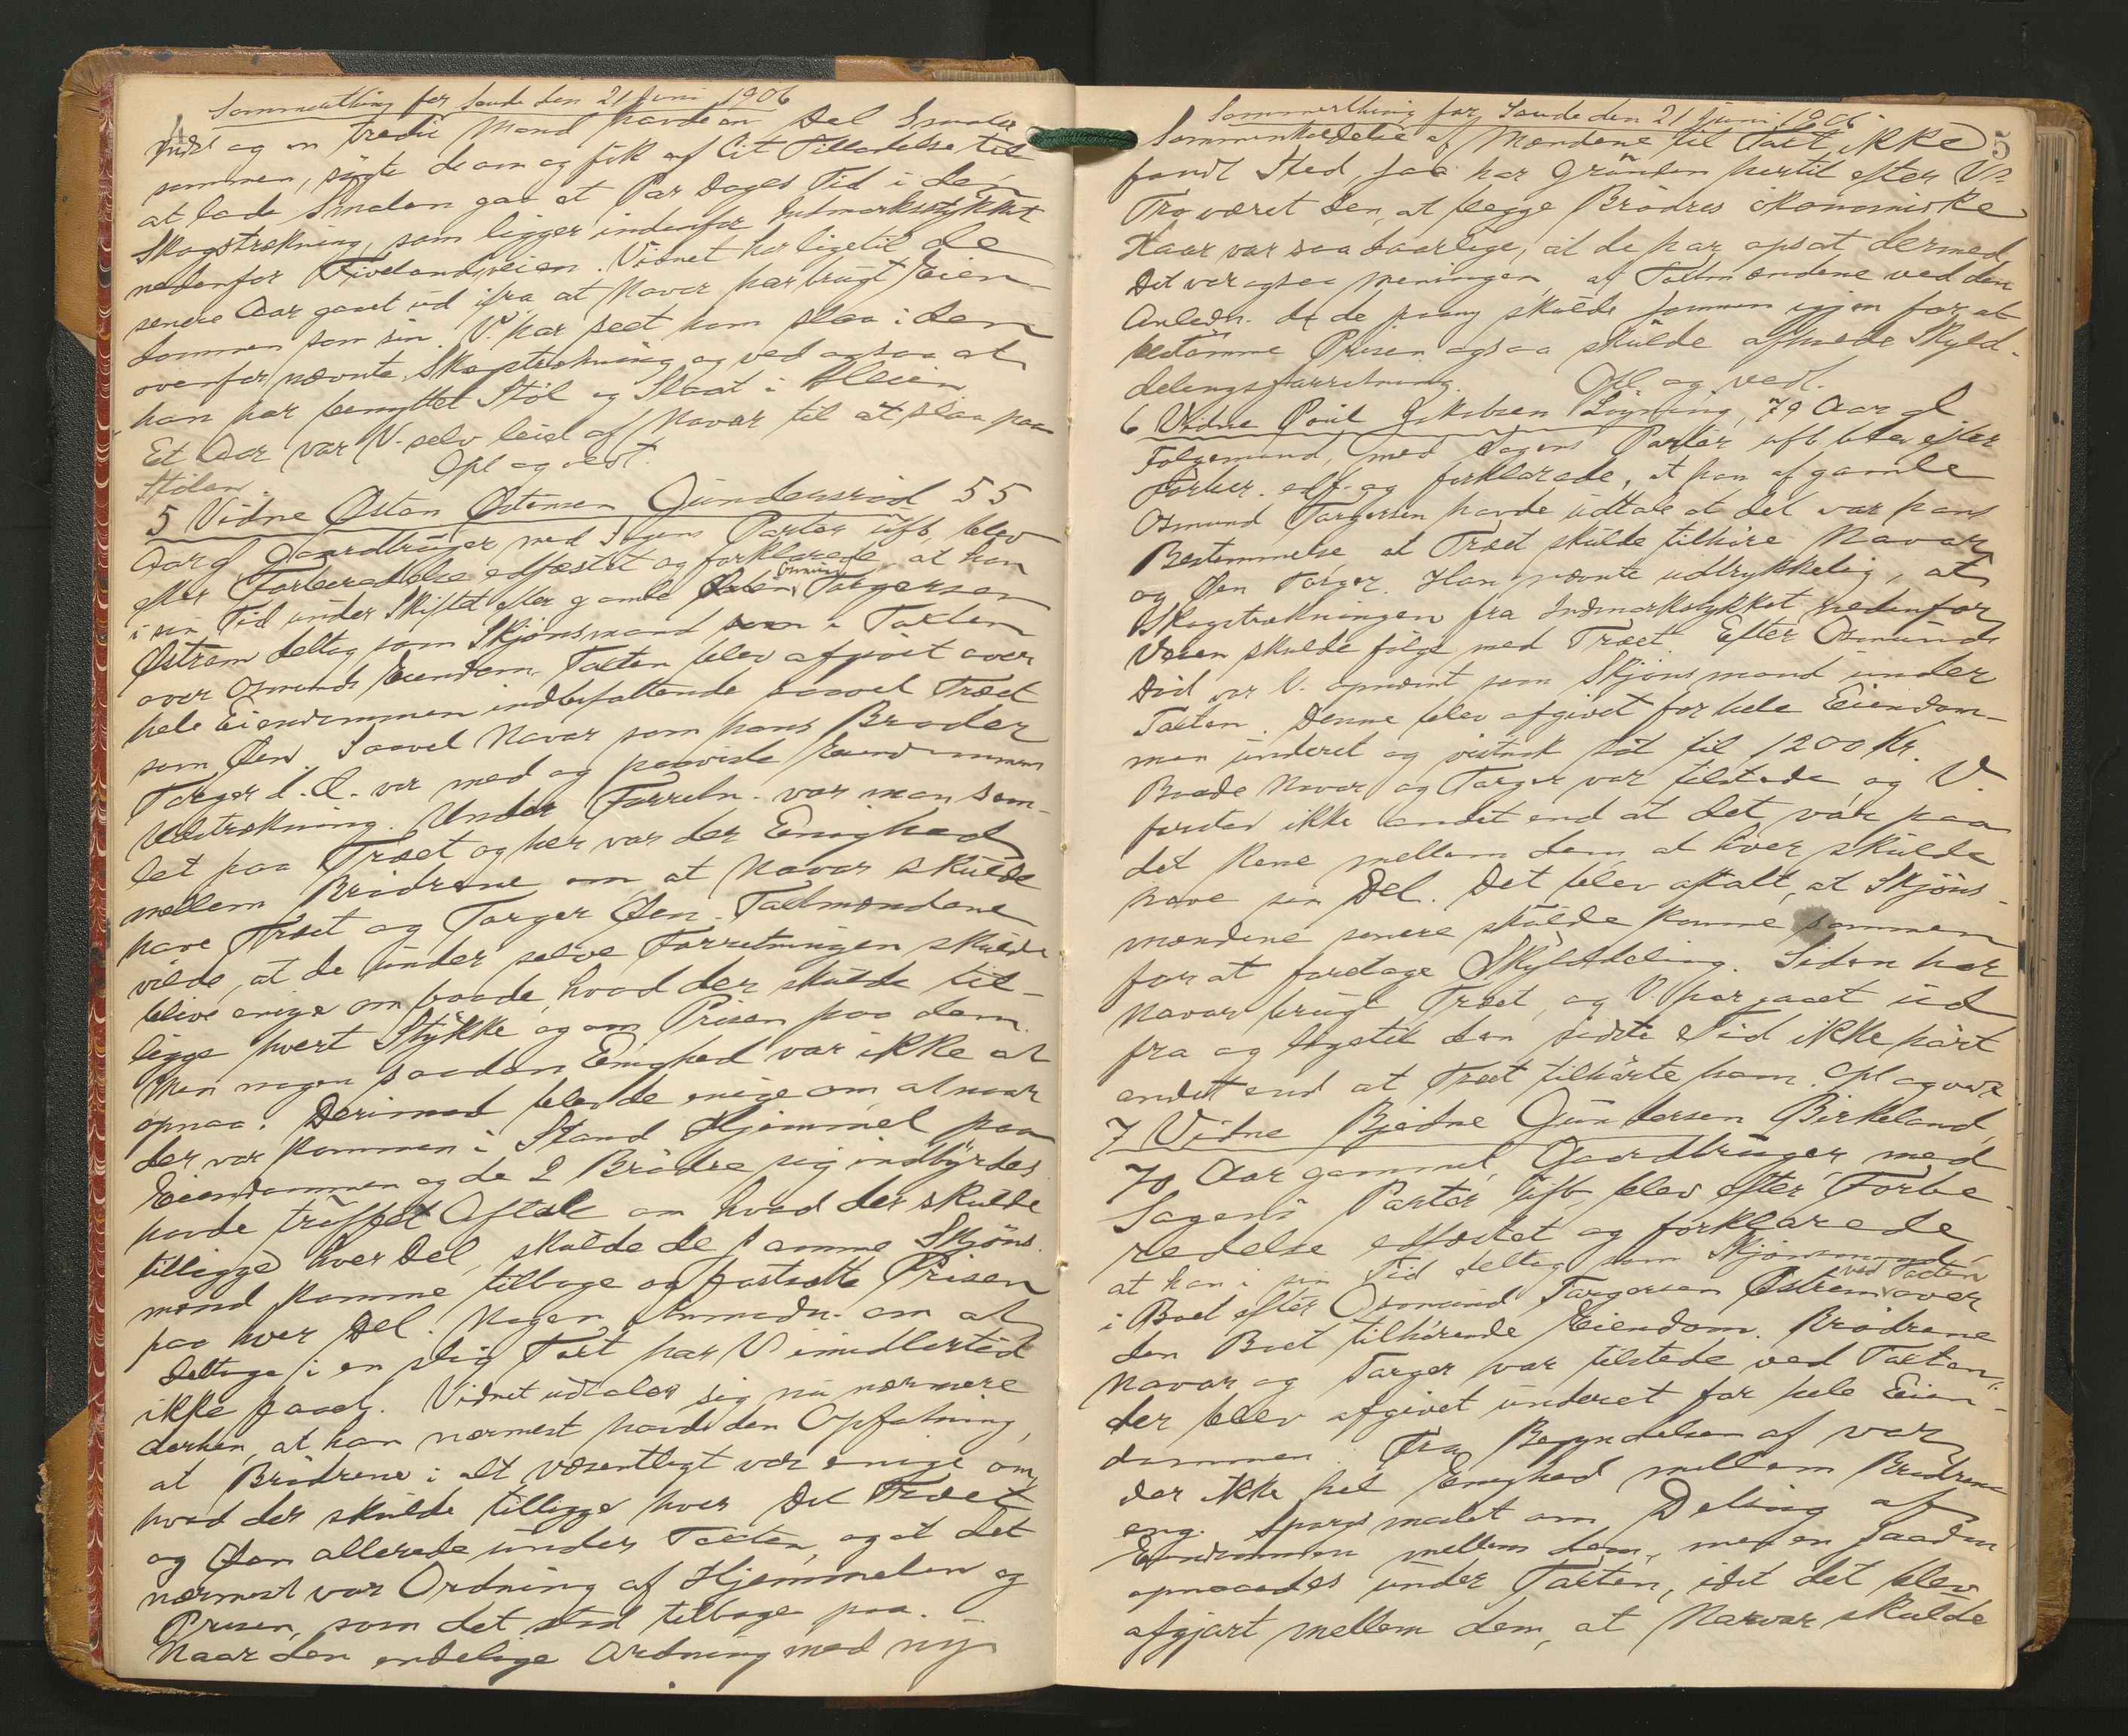 Sommerthing for Saude den 21 Juni 1906
4
og en tredie Mand havde en Del Smaler
sammen, søgte de om og fik af Cit Tilladelse til
at lade Smalen gaa et Par Dages Tid i den
Skogstrekning, som ligger indenfor Indmarksstykket
nedenfor Fivelandsveien. Vidnet har ligetil de
senere Aar gaaet ud ifra, at Navar har brugt Eien-
dommen som sin. V. har seet ham slaa i den
ovenfor nævnte Skogstrekning og ved ogsaa at
han har benyttet Støl og Slaat i Heien
Et Aar var V. selv leiet af Navar til at slaa paa
Stølen. Opl og vedt.
5 Vidne Østen Østensen Gundersrød 55
Aar gl Gaardbruger med Sagens Parter ubsl., blev
efter Forberedelse edfæstet og forklarede, at han
i sin Tid under Skiftet efter gamle Osmund Torgersen
Østrem deltog som Skjønsmand i Taxten
over Osmunds Eiendom. Taxten blev afgivet over
hele Eiendommen indbefattende saavel Træet
som Øen. Saavel Navar som hans Broder
Torger d. Æ. var med og paaviste Eiendommens
Udstrekning. Under Forretn. var man sam-
let paa Træet og her var der Enighed
mellem Brødrene om at Navar skulde
have Træet og Torger Øen. Taxtmændene
vilde, at de under selve Forretningen skulde
blive enige om baade, hvad der skulde til-
ligge hvert Stykke og om Prisen paa dem.
Men nogen saadan Enighed var ikke at
opnaa. Derimod blev de enige om, at naar
der var kommen i Stand Hjemmel paa
Eiendommen og de 2 Brødre sig indbyrdes
havde truffet Aftale om hvad der skulde
tilligge hver Del, skulde de samme Skjøns-
mænd komme tilbage og fastsætte Prisen
paa hver Del. Nogen Anmodn. om at
deltage i en slig Taxt har V. imidlertid
ikke faaet. Vidnet udtaler sig nu nærmere
derhen, at han nærmest havde den Opfatning,
at Brødrene i alt væsentligt var enige om
hvad der skulde tilligge hver Del Træet
og Øen allerede under Taxten, og at det
nærmest var Ordning af Hjemmelen og
Prisen, som det stod tilbage paa. -
Naar den endelige Ordning med ny
Sommerthing for Saude den 21 Juni 1906
5
Sammenkaldelse af Mændene til Taxt ikke
fandt Sted, saa har Grunden hertil efter V's
Tro været den, at begge Brødres økonomiske
Kaar var saa daarlige, at de har opsat dermed
Det var ogsaa Meningen, at Taxtmændene ved den
Anledn. da de paany skulde sammen igjen for at
bestemme Prisen ogsaa skulde afholde Skyld-
delingsforretning. Opl. og vedt.
6 Vidne Poul Jakobsen Løyning, 79 Aar gl
Følgemand, med Sagens Parter ubsl. blev efter
Forber. edf. og forklarede, at han af gamle
Osmund Torgersen havde udtale at det var hans
Bestemmelse at Træet skulde tilhøre Navar
og Øen Torger. Han nævnte udtrykkelig, at
Skogstrekningen fra Indmarkstykket nedenfor
Veien skulde følge med Træet. Efter Osmunds
Død var V. opnævnt som Skjønsmand under
Taxten. Denne blev afgivet for hele Eiendom-
men underet og sat til 1200 Kr.
Baade Navar og Torger var tilstede, og V.
forstod ikke andet end at det var paa
det Rene mellem dem, at hver skulde
have sin Del. Det blev aftalt, at Skjøns-
mændene senere skulde komme sammen
for at foretage Skylddeling. Siden har
Navar brugt Træet, og V. har gaaet ud
fra og ligetil den sidste Tid ikke hørt
andet end at Træet tilhørte ham. Opl og vedt
7 Vidne Bjedne Gundersen Birkeland,
70 Aar gammel, Gaardbruger, med
Sagens Parter ubsl, blev efter Forbe-
redelse edfæstet og forklarede
at han i sin Tid deltog som Skjønsmand
i Boet efter Osmund Torgersen Østrem ved Taxten over
den Boet tilhørende Eiendom. Brødrene
Navar og Torger var tilstede ved Taxten,
der blev afgivet underet for hele Eien-
dommen. Fra Begyndelsen af var
der ikke hel Enighed mellem Brødrene
ang. Spørgsmalet om Deling af
Eiendommen mellem dem, men en saadan
opnaaedes under Taxten, idet det blev
afgjort mellem dem, at Navar skulde